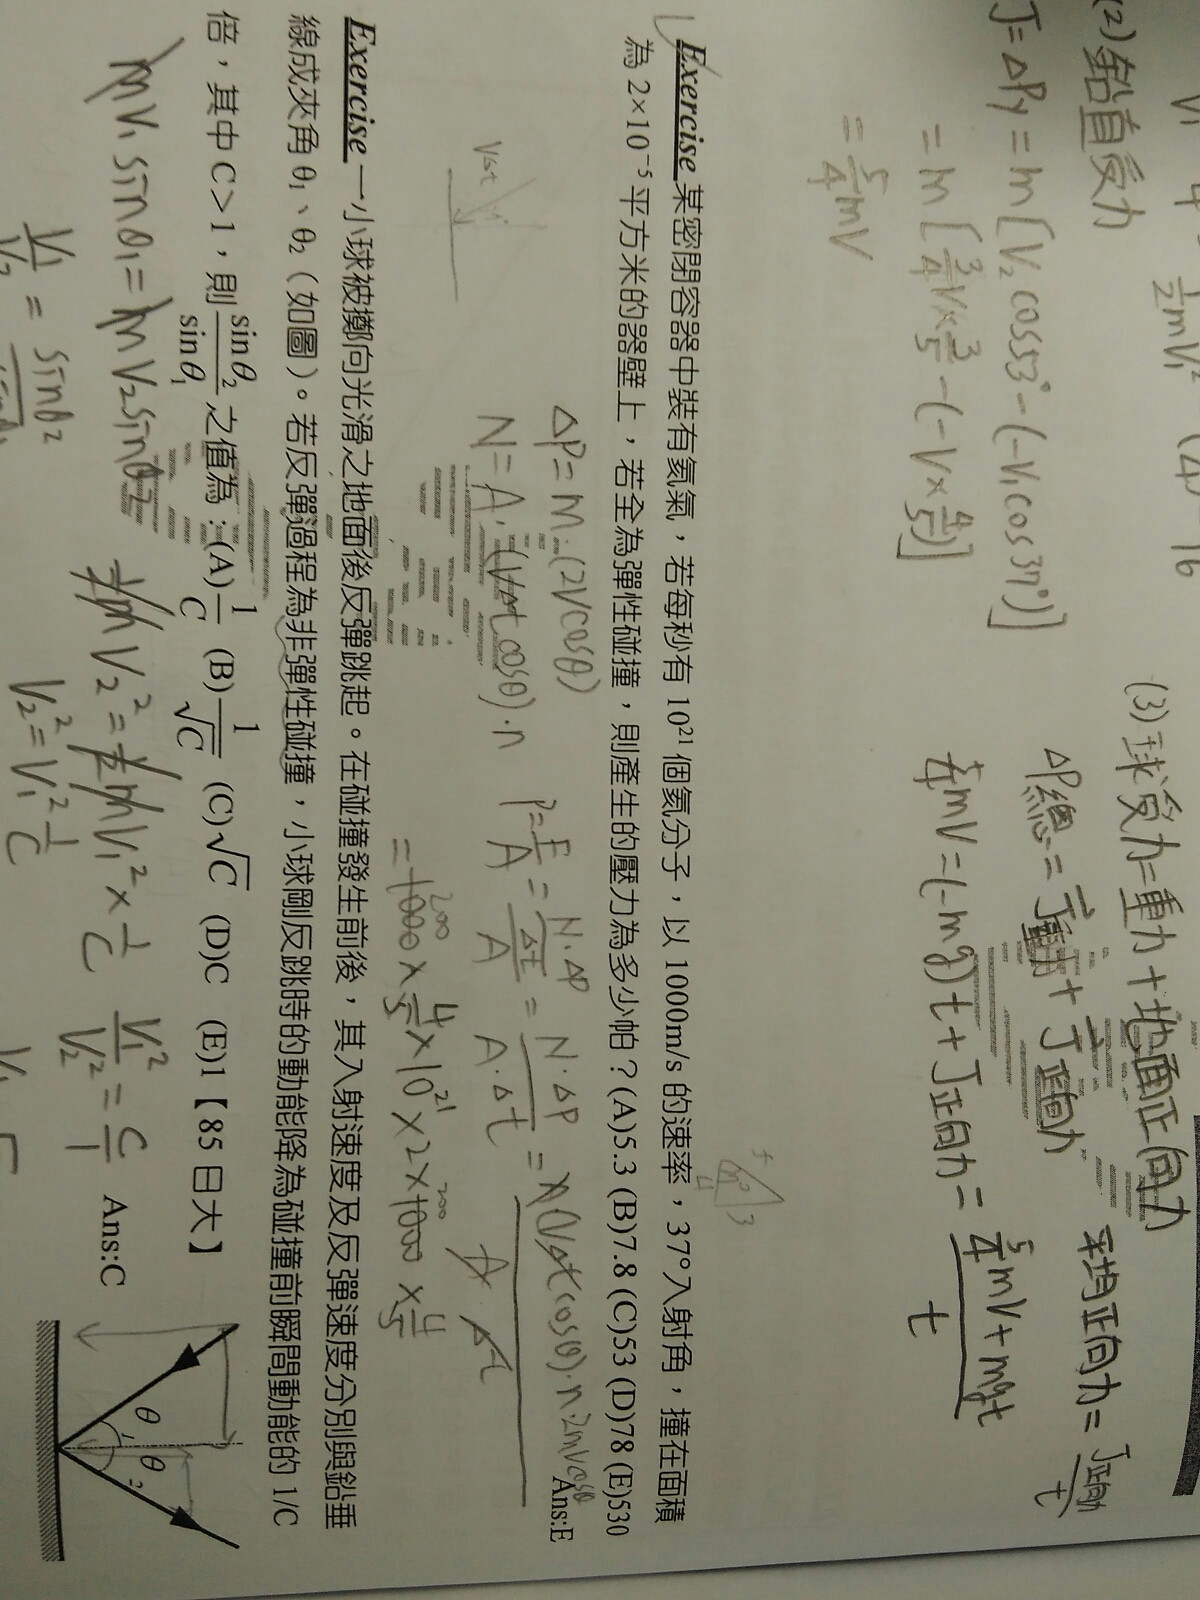 (2) 鉛直受力
J=ΔPy=m[V₂cos53°-(-V₁cos37°)]
=m[3/4V×3/5-(-V×4/5)]
=5/4mV
(3) 球受力=重力+地面正向力
ΔP總=J重力+J正向力
5/4mV=(-mg)t+J正向力=
平均正向力=J正向力/t
5/4mV+mgt/t
Exercise 某密閉容器中裝有氦氣,若每秒有 10²¹ 個氦分子,以 1000m/s 的速率,37°入射角,撞在面積
為 2×10⁻⁵ 平方米的器壁上,若全為彈性碰撞,則產生的壓力為多少帕?(A)5.3 (B)7.8 (C)53 (D)78 (E)530
Ans:E
ΔP=m·(2Vcosθ)
N=A·(VΔtcosθ)·n
P=F/A=N·ΔP/Δt/A=N·ΔP/A·Δt=
VΔt
=1000×4/5×10²¹×2×1000×4/5
200
200
Exercise 一小球被擲向光滑之地面後反彈跳起。在碰撞發生前後,其入射速度及反彈速度分別與鉛垂
線成夾角 θ₁、θ₂(如圖)。若反彈過程為非彈性碰撞,小球剛反跳時的動能降為碰撞前瞬間動能的 1/C
倍,其中 C>1,則 sinθ₂/sinθ₁ 之值為:(A)1/C (B)1/√C (C)√C (D)C (E)1【85 日大】
Ans:C
mV₁sinθ₁=mV₂sinθ₂
1/2mV₂²=1/2mV₁²×1/C
V₁²/V₂²=C/1
V₂²=V₁²1/C
θ₁
θ₂